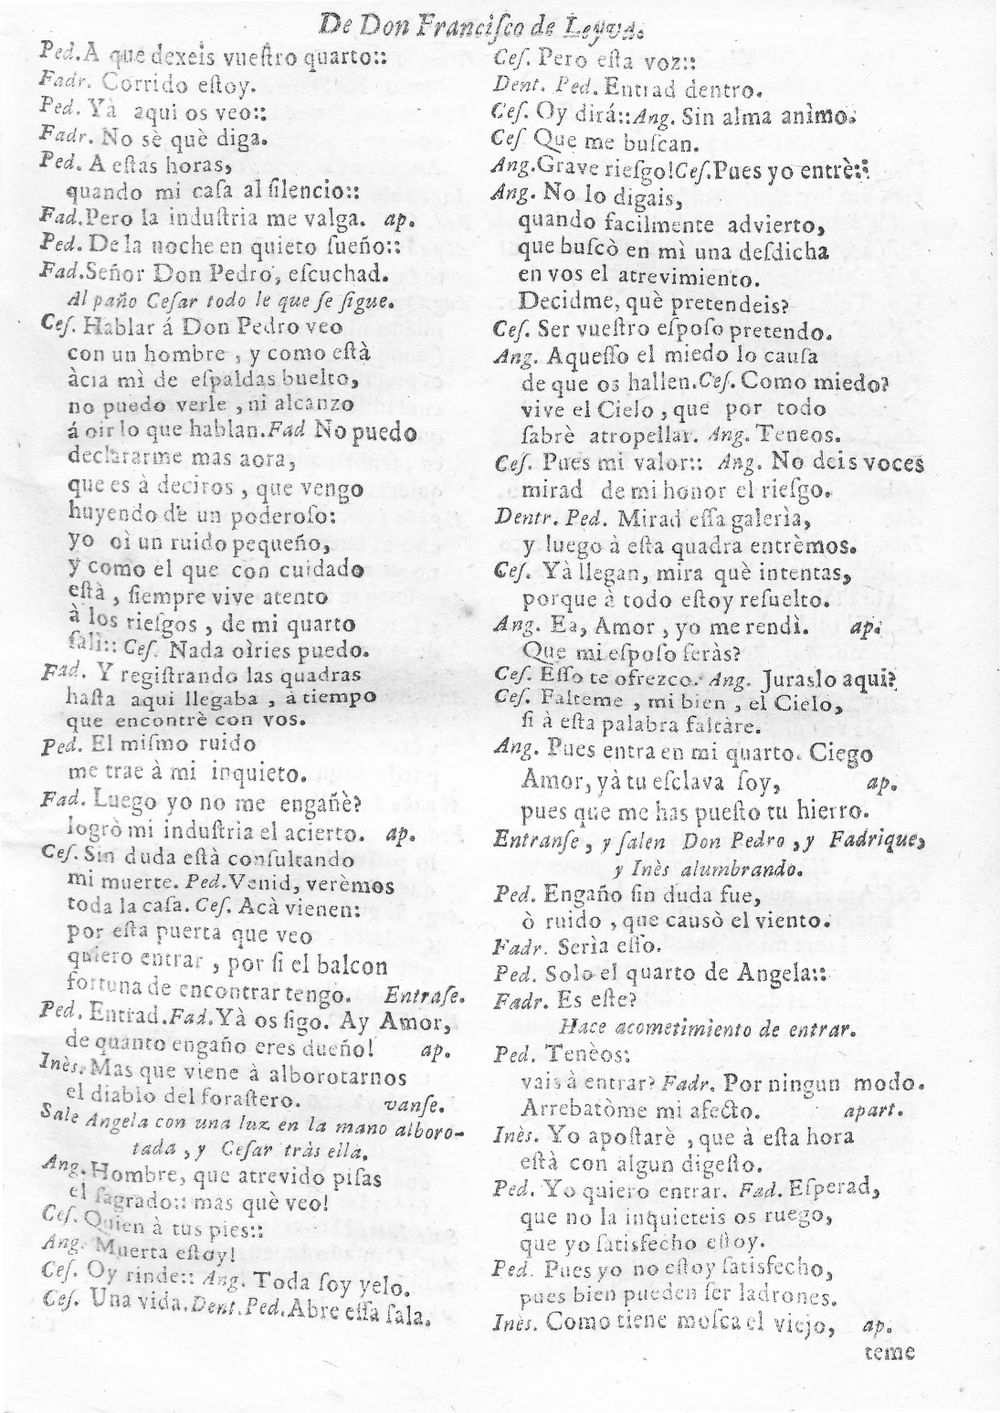 De Don Francisco de Leyva.
Ped. A que dexeis vueſtro quarto::
Fadr. Corrido eſtoy.
Ped. Yà aqui os veo::
Fadr. No sè què diga.
Ped. A eſtas horas,
quando mi caſa al ſilencio::
Fad. Pero la induſtria me valga. ap.
Ped. De la noche en quieto ſueño::
Fad. Señor Don Pedro, eſcuchad.
Al paño Ceſar todo le que ſe ſigue.
Ceſ. Hablar á Don Pedro veo
con un hombre, y como eſtà
àcia mì de eſpaldas buelto,
no puedo verle, ni alcanzo
á oir lo que hablan. Fad No puedo
declararme mas aora,
que es à deciros, que vengo
huyendo de un poderoſo:
yo oì un ruido pequeño,
y como el que con cuidado
eſtà, ſiempre vive atento
à los rieſgos, de mi quarto
ſali:: Ceſ. Nada oìries puedo.
Fad. Y regiſtrando las quadras
haſta aqui llegaba, à tiempo
que encontrè con vos.
Ped. El miſmo ruido
me trae à mi inquieto.
Fad. Luego yo no me engañè?
logrò mi induſtria el acierto. ap.
Ceſ. Sin duda eſtà conſultando
mi muerte. Ped. Venid, verèmos
toda la caſa. Ceſ. Acà vienen:
por eſta puerta que veo
quiero entrar, por ſi el balcon
fortuna de encontrar tengo. Entraſe.
Ped. Entrad. Fad. Yà os ſigo. Ay Amor,
de quanto engaño eres dueño! ap.
Inès. Mas que viene à alborotarnos
el diablo del foraſtero. vanſe.
Sale Angela con una luz en la mano alboro-
tada, y Ceſar tràs ella.
Ang. Hombre, que atrevido piſas
el ſagrado:: mas què veo!
Ceſ. Quien à tus pies::
Ang. Muerta eſtoy!
Ceſ. Oy rinde:: Ang. Toda ſoy yelo.
Ceſ. Una vida. Dent. Ped. Abre eſſa ſala.
Ceſ. Pero eſta voz::
Dent. Ped. Entrad dentro.
Ceſ. Oy dirá:: Ang. Sin alma anìmo.
Ceſ Que me buſcan.
Ang. Grave rieſgo! Ceſ. Pues yo entrè::
Ang. No lo digais,
quando facilmente advierto,
que buſcò en mì una deſdicha
en vos el atrevimiento.
Decidme, què pretendeis?
Ceſ. Ser vueſtro eſpoſo pretendo.
Ang. Aqueſſo el miedo lo cauſa
de que os hallen. Ceſ. Como miedo?
vive el Cielo, que por todo
ſabrè atropellar. Ang. Teneos.
Ceſ. Pues mi valor:: Ang. No deis voces
mirad de mi honor el rieſgo.
Dentr. Ped. Mirad eſſa galerìa,
y luego à eſta quadra entrèmos.
Ceſ. Yà llegan, mira què intentas,
porque à todo eſtoy reſuelto.
Ang. Ea, Amor, yo me rendì. ap.
Que mi eſpoſo ſeràs?
Ceſ. Eſſo te ofrezco. Ang. Juraslo aqui?
Ceſ. Falteme, mi bien, el Cielo,
ſi à eſta palabra faltàre.
Ang. Pues entra en mi quarto. Ciego
Amor, yà tu eſclava ſoy, ap.
pues que me has pueſto tu hierro.
Entranſe, y ſalen Don Pedro, y Fadrique,
y Inès alumbrando.
Ped. Engaño ſin duda fue,
ò ruido, que causò el viento.
Fadr. Serìa eſſo.
Ped. Solo el quarto de Angela::
Fadr. Es eſte?
Hace acometimiento de entrar.
Ped. Tenèos:
vais à entrar? Fadr. Por ningun modo.
Arrebatòme mi afecto. apart.
Inès. Yo apoſtarè, que à eſta hora
eſtà con algun digeſto.
Ped. Yo quiero entrar. Fad. Eſperad,
que no la inquieteis os ruego,
que yo ſatisfecho eſtoy.
Ped. Pues yo no eſtoy ſatisfecho,
pues bien pueden ſer ladrones.
Inès. Como tiene moſca el viejo, ap.
teme